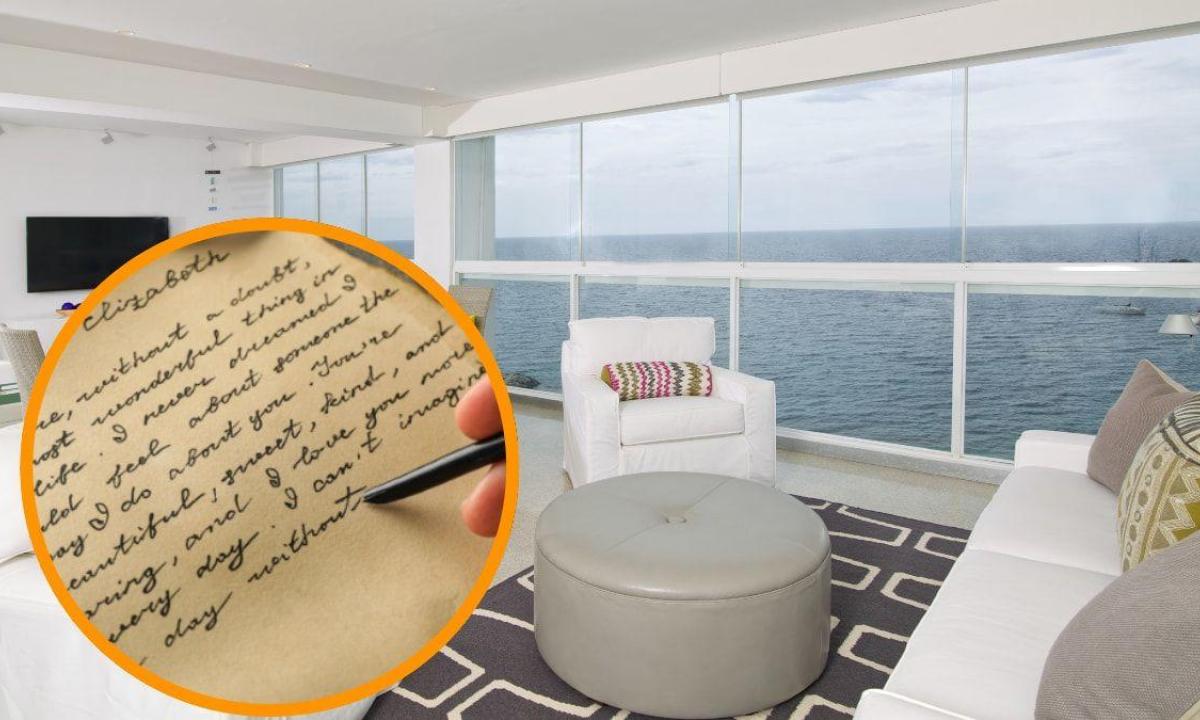 Elizabeth
re, without a doubt,
ost wonderful thing in
life. I never dreamed I
uld feel about someone the
ay I do about you. You're
eautiful, sweet, kind, and
aring, and I love you more
very day. I can't imagin
day without